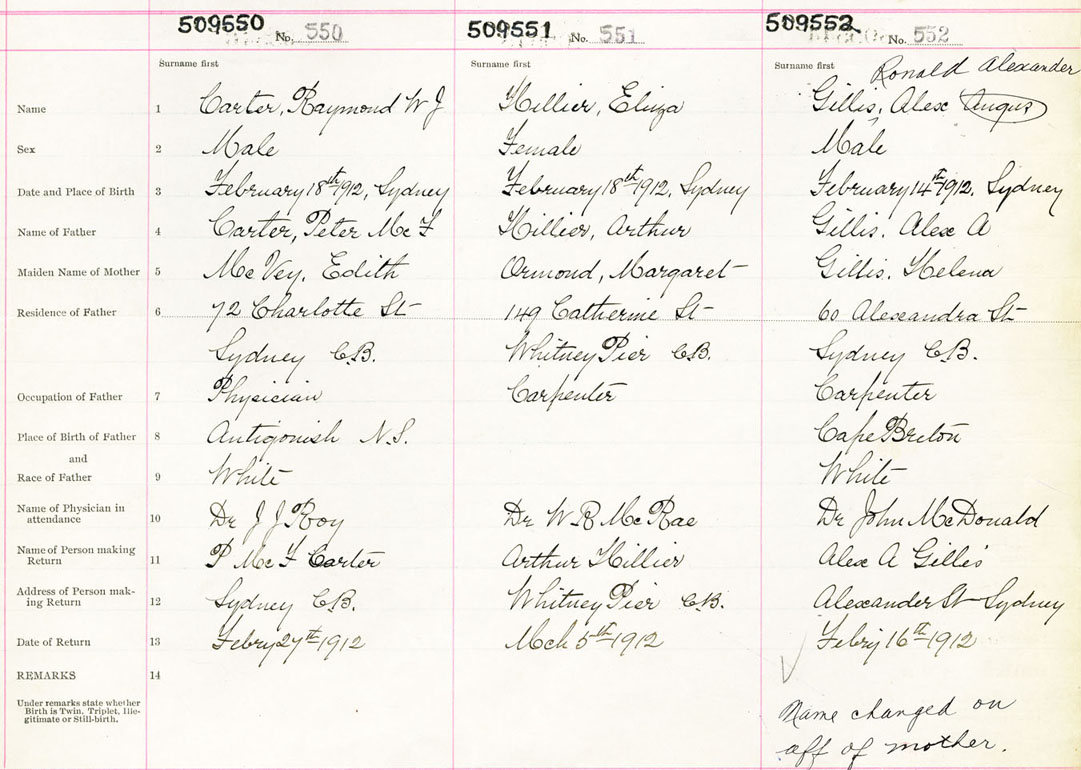 509550 No. 550 509551 No. 551 509552 No. 552
Surname first Surname first Surname first Ronald Alexander
Name 1 Carter, Raymond W J Hillier, Eliza Gillis, Alex Angus
Sex 2 Male Female Male
Date and Place of Birth 3 February 18th 1912, Sydney February 18th 1912, Sydney February 14th 1912, Sydney
Name of Father 4 Carter, Peter McF Hillier, Arthur Gillis, Alex A
Maiden Name of Mother 5 McVey, Edith Ormond, Margaret Gillis, Helena
Residence of Father 6 72 Charlotte St 149 Catherine St 60 Alexandra St
Sydney C.B. Whitney Pier C.B. Sydney C.B.
Occupation of Father 7 Physician Carpenter Carpenter
Place of Birth of Father 8 Antigonish N.S. Cape Breton
and
Race of Father 9 White White
Name of Physician in
attendance 10 Dr J J Roy Dr W R McRae Dr John McDonald
Name of Person making
Return 11 P McF Carter Arthur Hillier Alex A Gillis
Address of Person mak-
ing Return 12 Sydney C.B. Whitney Pier C.B. Alexander St Sydney
Date of Return 13 Febry 27th 1912 Mch 5th 1912 Febry 16th 1912
REMARKS 14
Under remarks state whether
Birth is Twin, Triplet, Ille-
gitimate or Still-birth.
Name changed on
aff of mother.